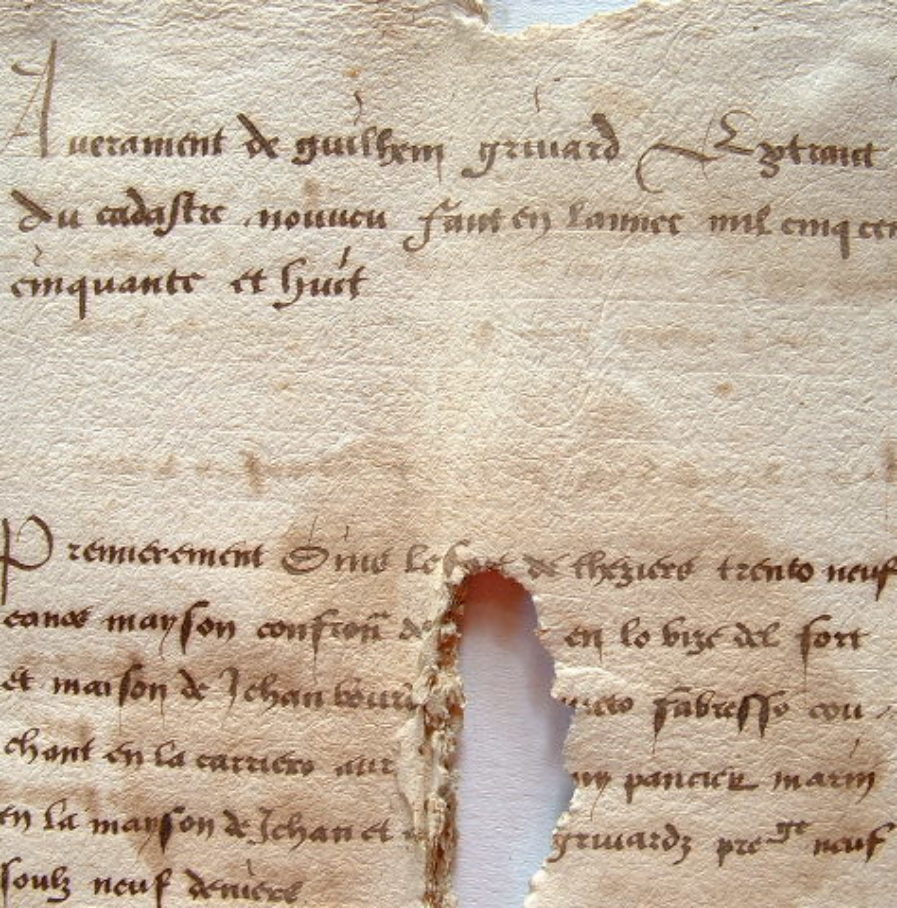 Averament de guilhem griuard Extraict
du cadastre nouueu faict en lannee mil cinq cen
cinquante et huict
Premierement Dins le fort de theziers trento neuf
canes mayson confron de en lo vize del fort
et maison de Jehan fabresso cou
chant en la carriero aur marin
en la mayson de Jehan et griuardz pre ge neuf
soulz neuf deniers